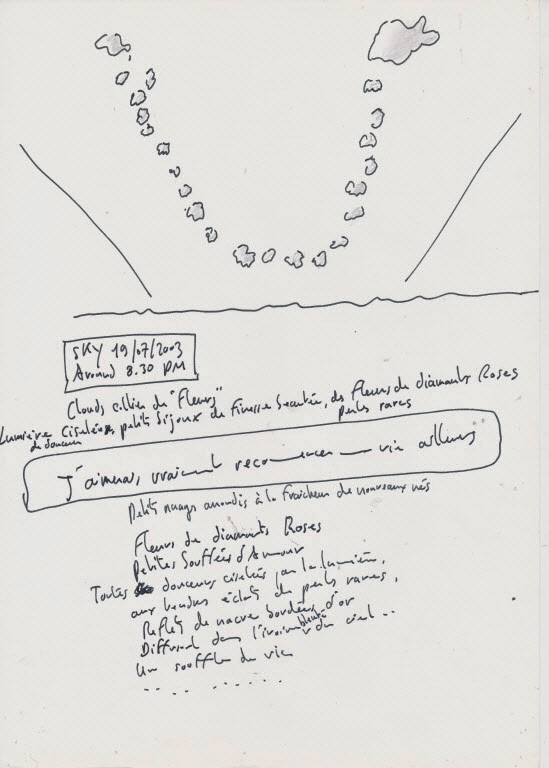 SKY 19/07/2003
Around 8.30 PM
Clouds collier de "Fleurs"
Lumière Ciselée, petits bijoux de Finesse, des Fleurs de diamants Roses
de douceur perles rares
J'aimerais vraiment recommencer une vie ailleurs
Petits nuages arrondis à la fraîcheur de nouveaux nés
Fleurs de diamants Roses
Petites Soufflées d'Amour
Toutes douceurs ciselées par la lumière,
aux tendres éclats de perles rares,
Reflets de nacre bordeurs d'or
Diffusant dans l'ivoire bleuté du ciel...
Un souffle de vie
.... .. . . . . .